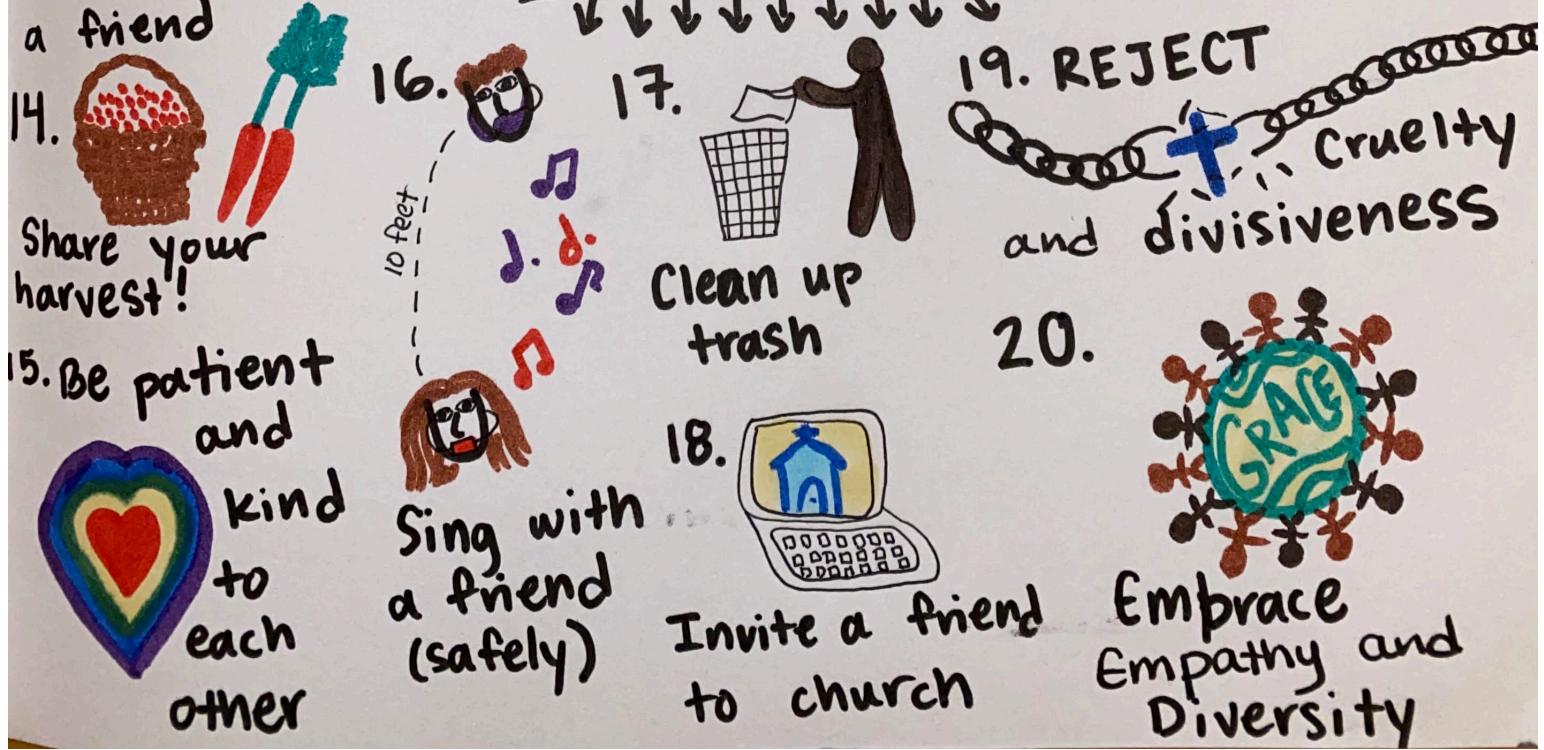 a friend
14.
Share your
harvest!
15. Be patient
and
kind
to
each
other
16.
10 feet
Sing with
a friend
(safely)
17.
Clean up
trash
18.
Invite a friend
to church
19. REJECT
Cruelty
and divisiveness
20.
GRACE
Embrace
Empathy and
Diversity